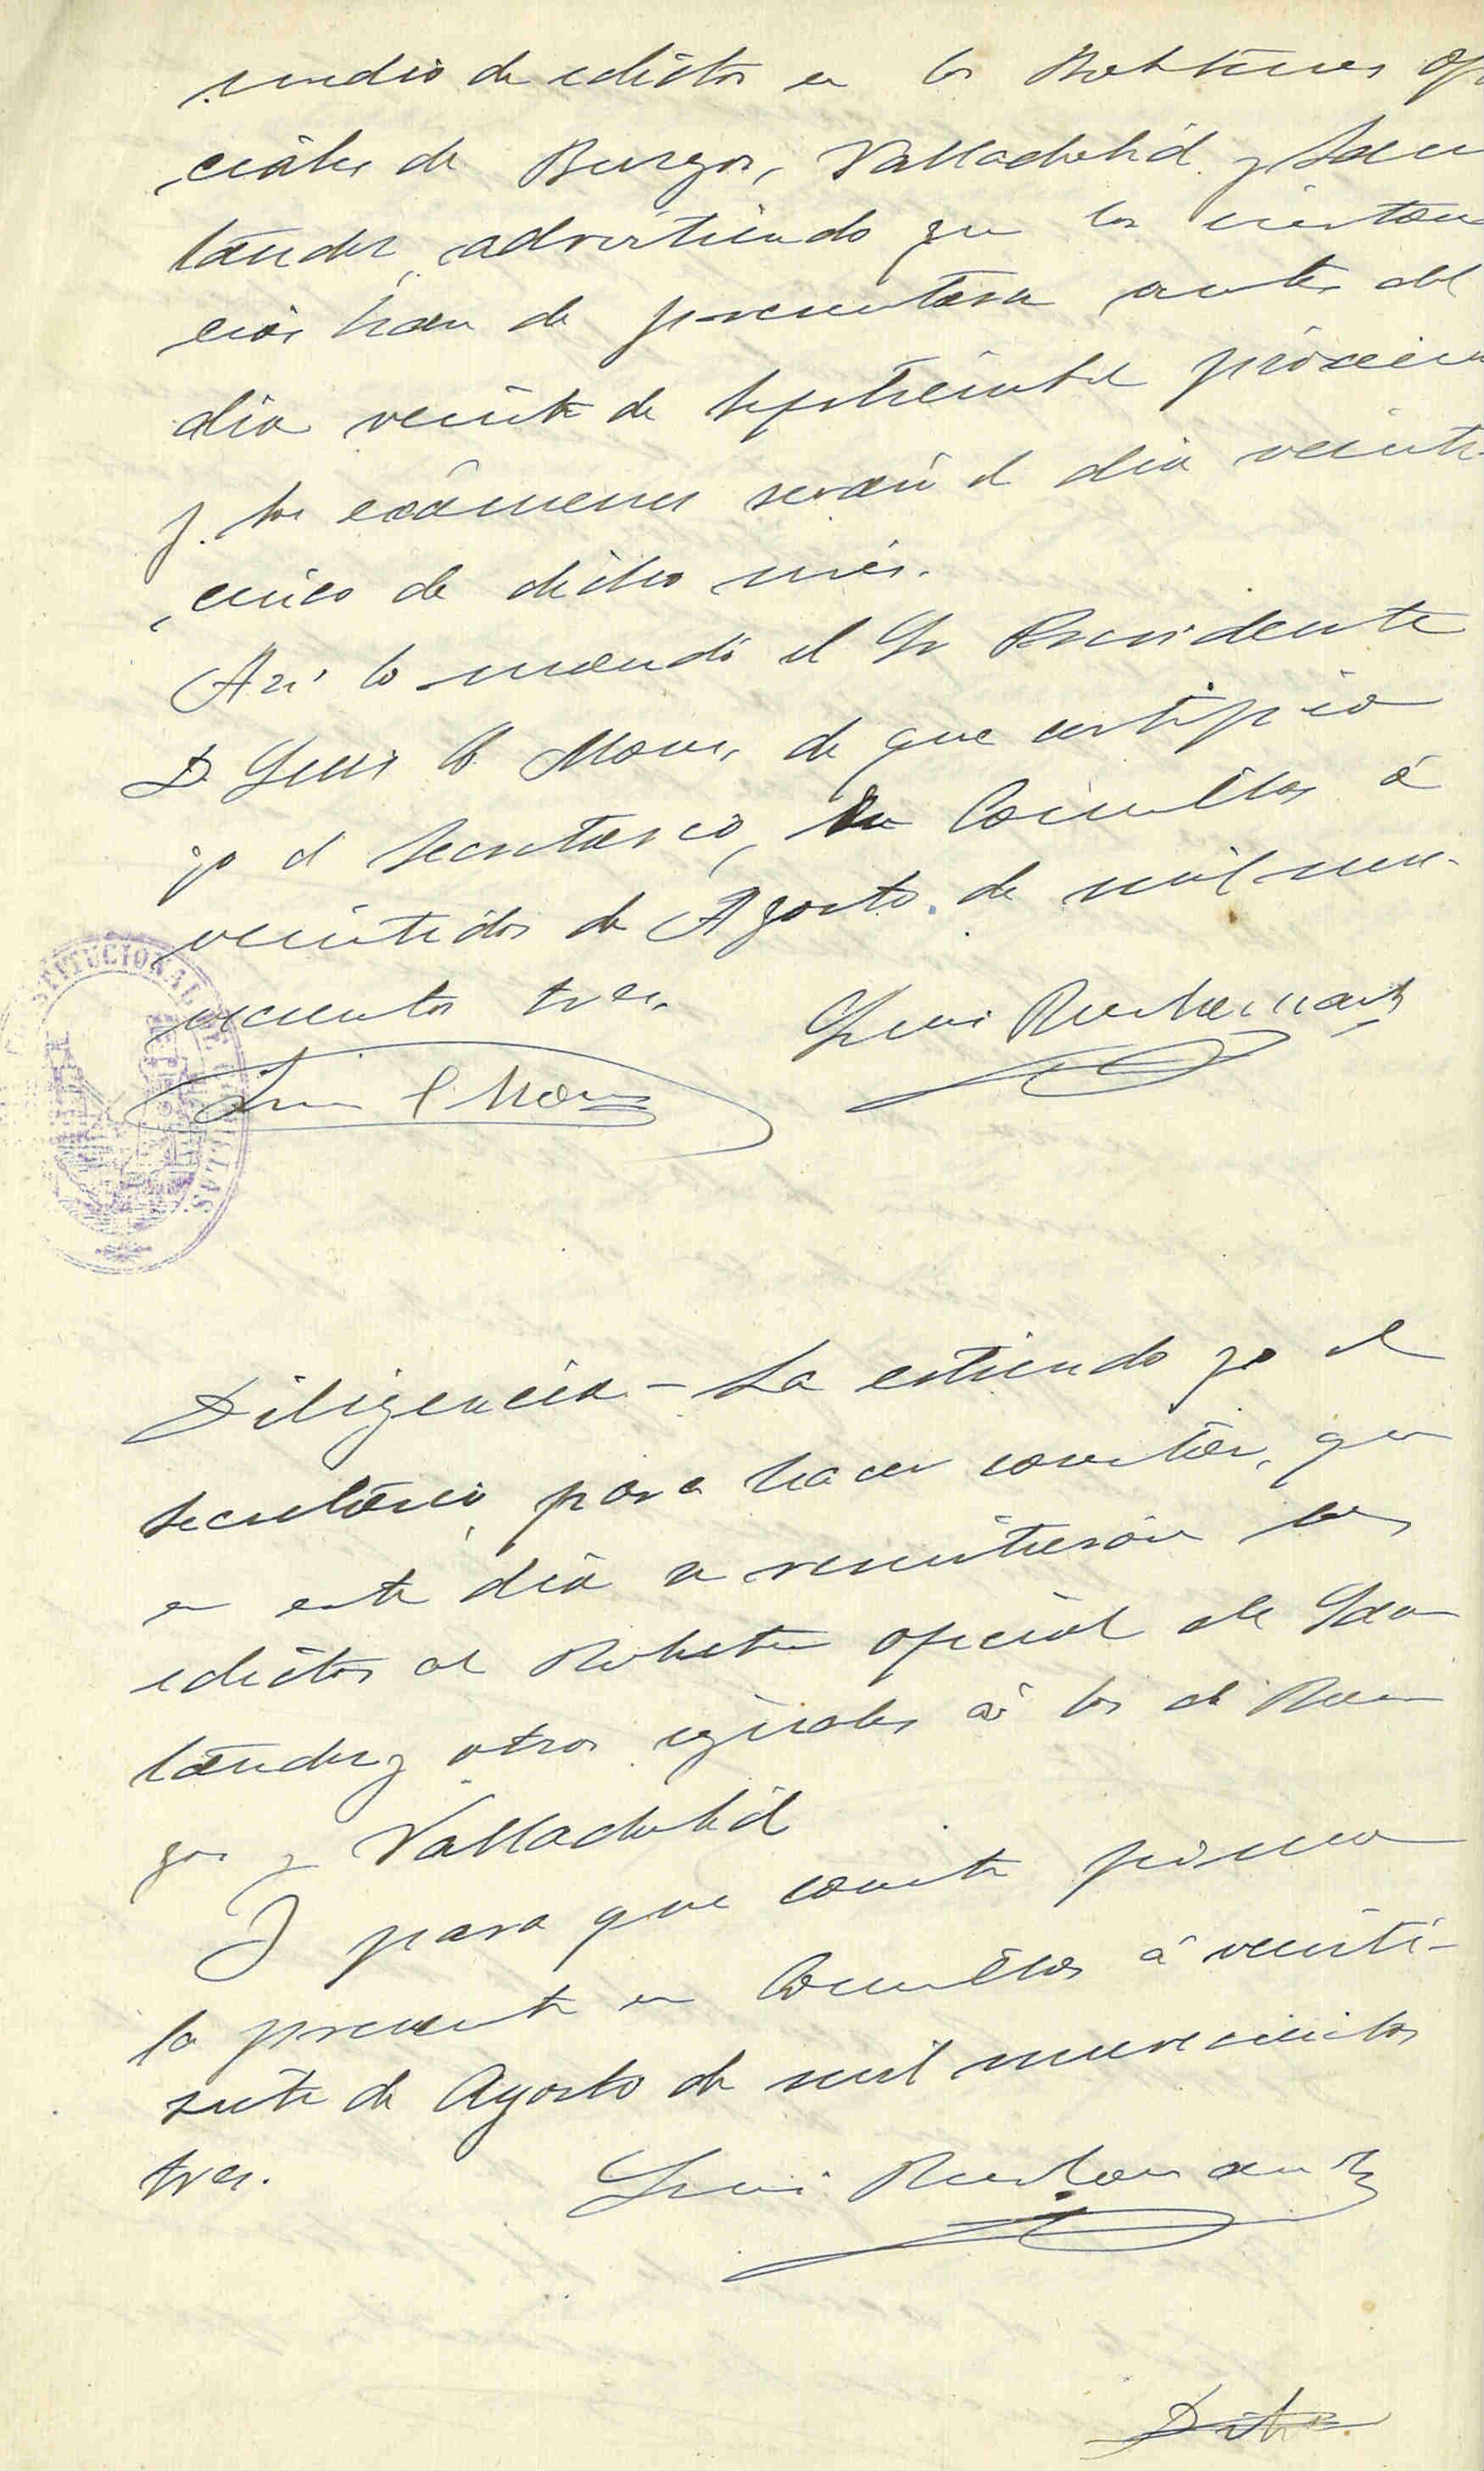 medio de edictos en los Boletines ofi
ciales de Burgos, Valladolid y San
tander, advirtiendo que las instan
cias han de presentarse antes del
dia veinte de Septiembre próximo
y los exámenes serán el dia veinti
cinco de dicho mes.
Asi lo mandó el Sr Presidente
D. Luis C. Mons, de que certifico
yo el Secretario, en Comillas á
veintidos de Agosto de mil nove-
cientos tres.
Luis
Luis C Mons
CONSTITUCIONAL DE COMILLAS
Diligencia - La estiendo yo el
Secretario para hacer constar, que
en este dia se remitieron los
edictos al Boletin oficial de San
tander y otros iguales á los de Bur
gos y Valladolid
Y para que conste firmo
la presente en Comillas á veinti-
siete de Agosto de mil novecientos
tres.
Luis